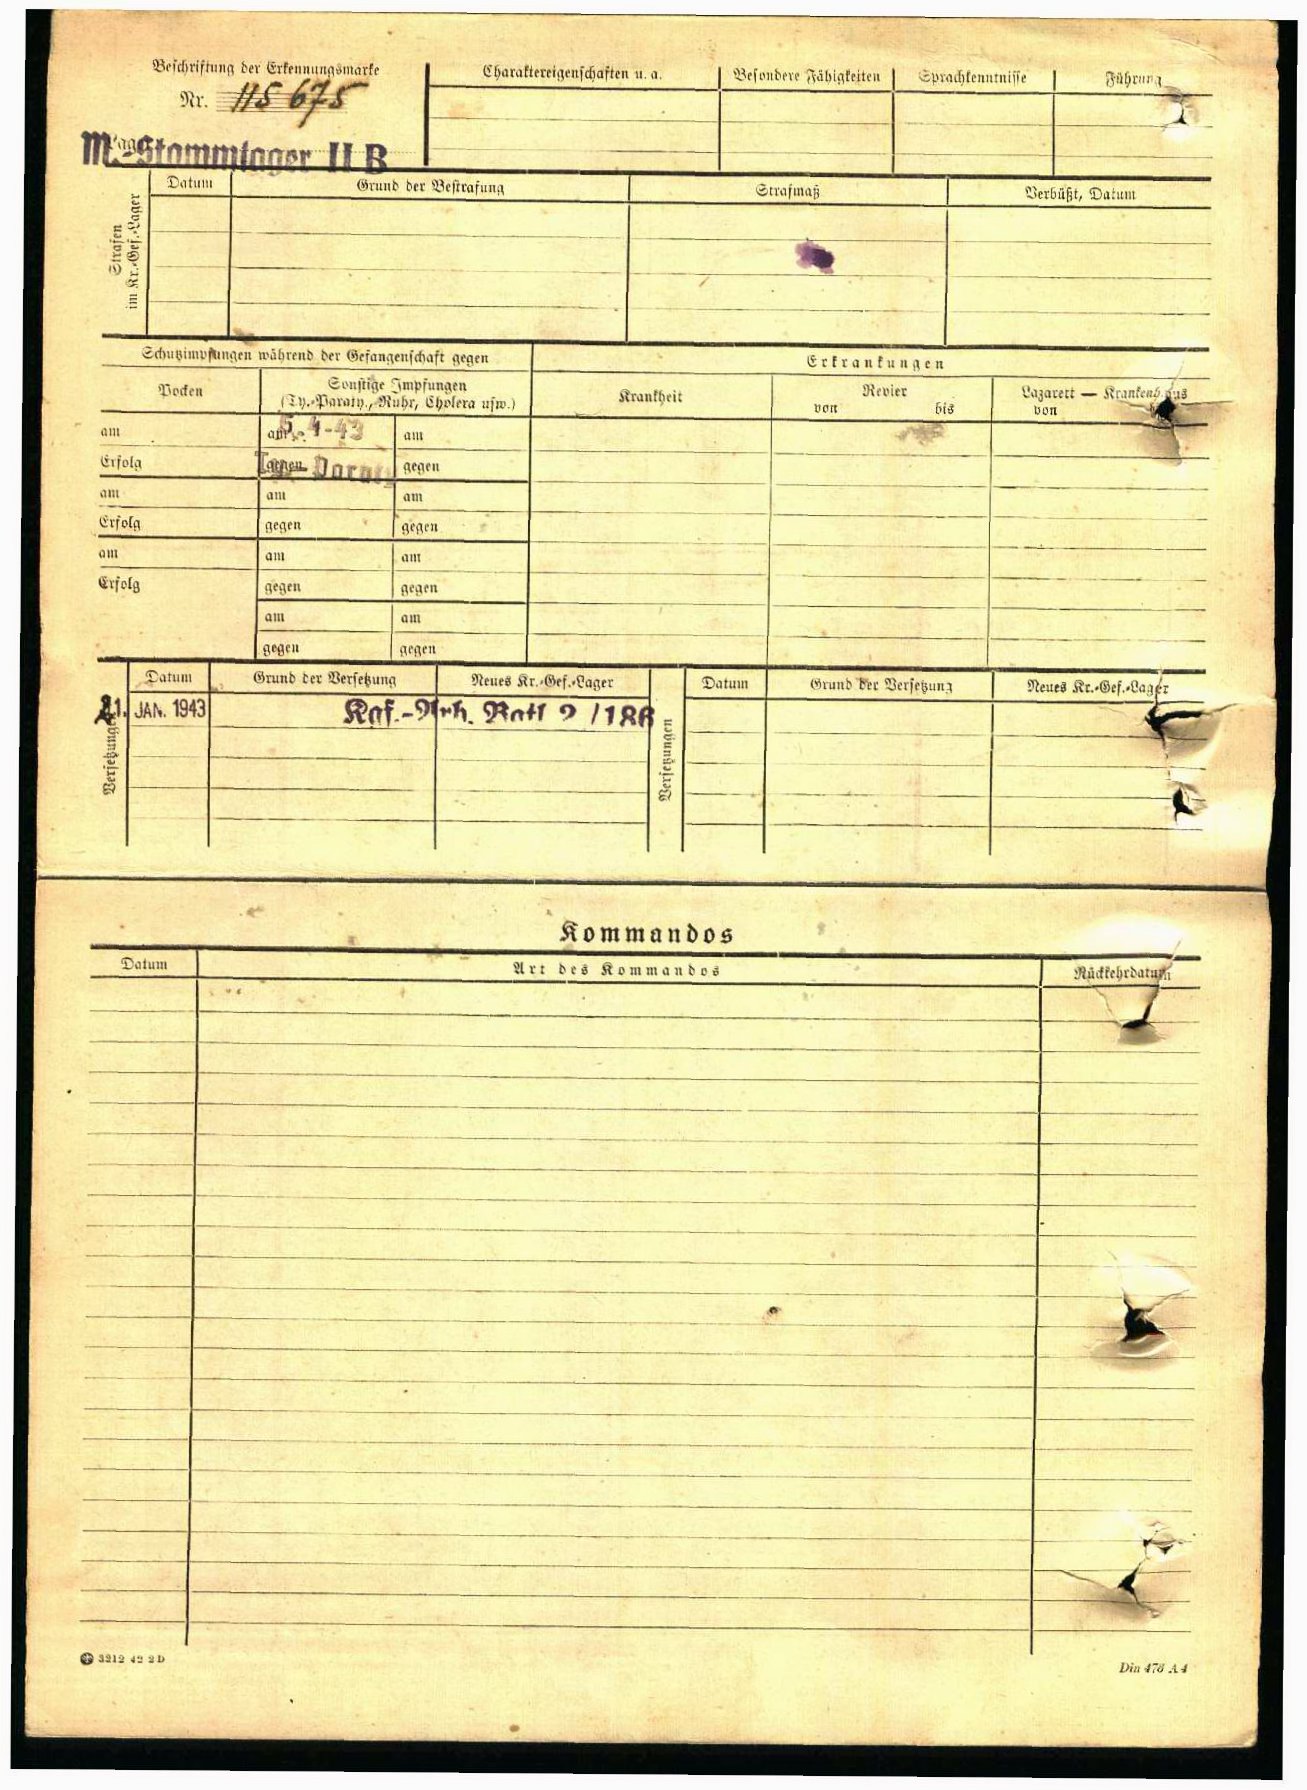 Beschriftung der Erkennungsmarke
Nr. 115 675
M.-Stammlager II B
Charaktereigenschaften u. a.
Besondere Fähigkeiten
Sprachkenntnisse
Führung
Strafen
im Kr.-Gef.-Lager
Datum
Grund der Bestrafung
Strafmaß
Verbüßt, Datum
Schutzimpfungen während der Gefangenschaft gegen
Erkrankungen
Pocken
Sonstige Impfungen
(Ty.-Paraty., Ruhr, Cholera usw.)
Krankheit
Revier
von bis
Lazarett — Krankenhaus
von
am am 5.4-43 am
Erfolg gegen Ty-Paraty gegen
am am am
Erfolg gegen gegen
am am am
Erfolg gegen gegen
am am
gegen gegen
Versetzungen
Datum
Grund der Versetzung
Neues Kr.-Gef.-Lager
21. JAN. 1943
Kgf.-Arb. Batl 2 /186
Versetzungen
Datum
Grund der Versetzung
Neues Kr.-Gef.-Lager
Kommandos
Datum
Art des Kommandos
Rückkehrdatum
3212 42 2 D
Din 476 A 4